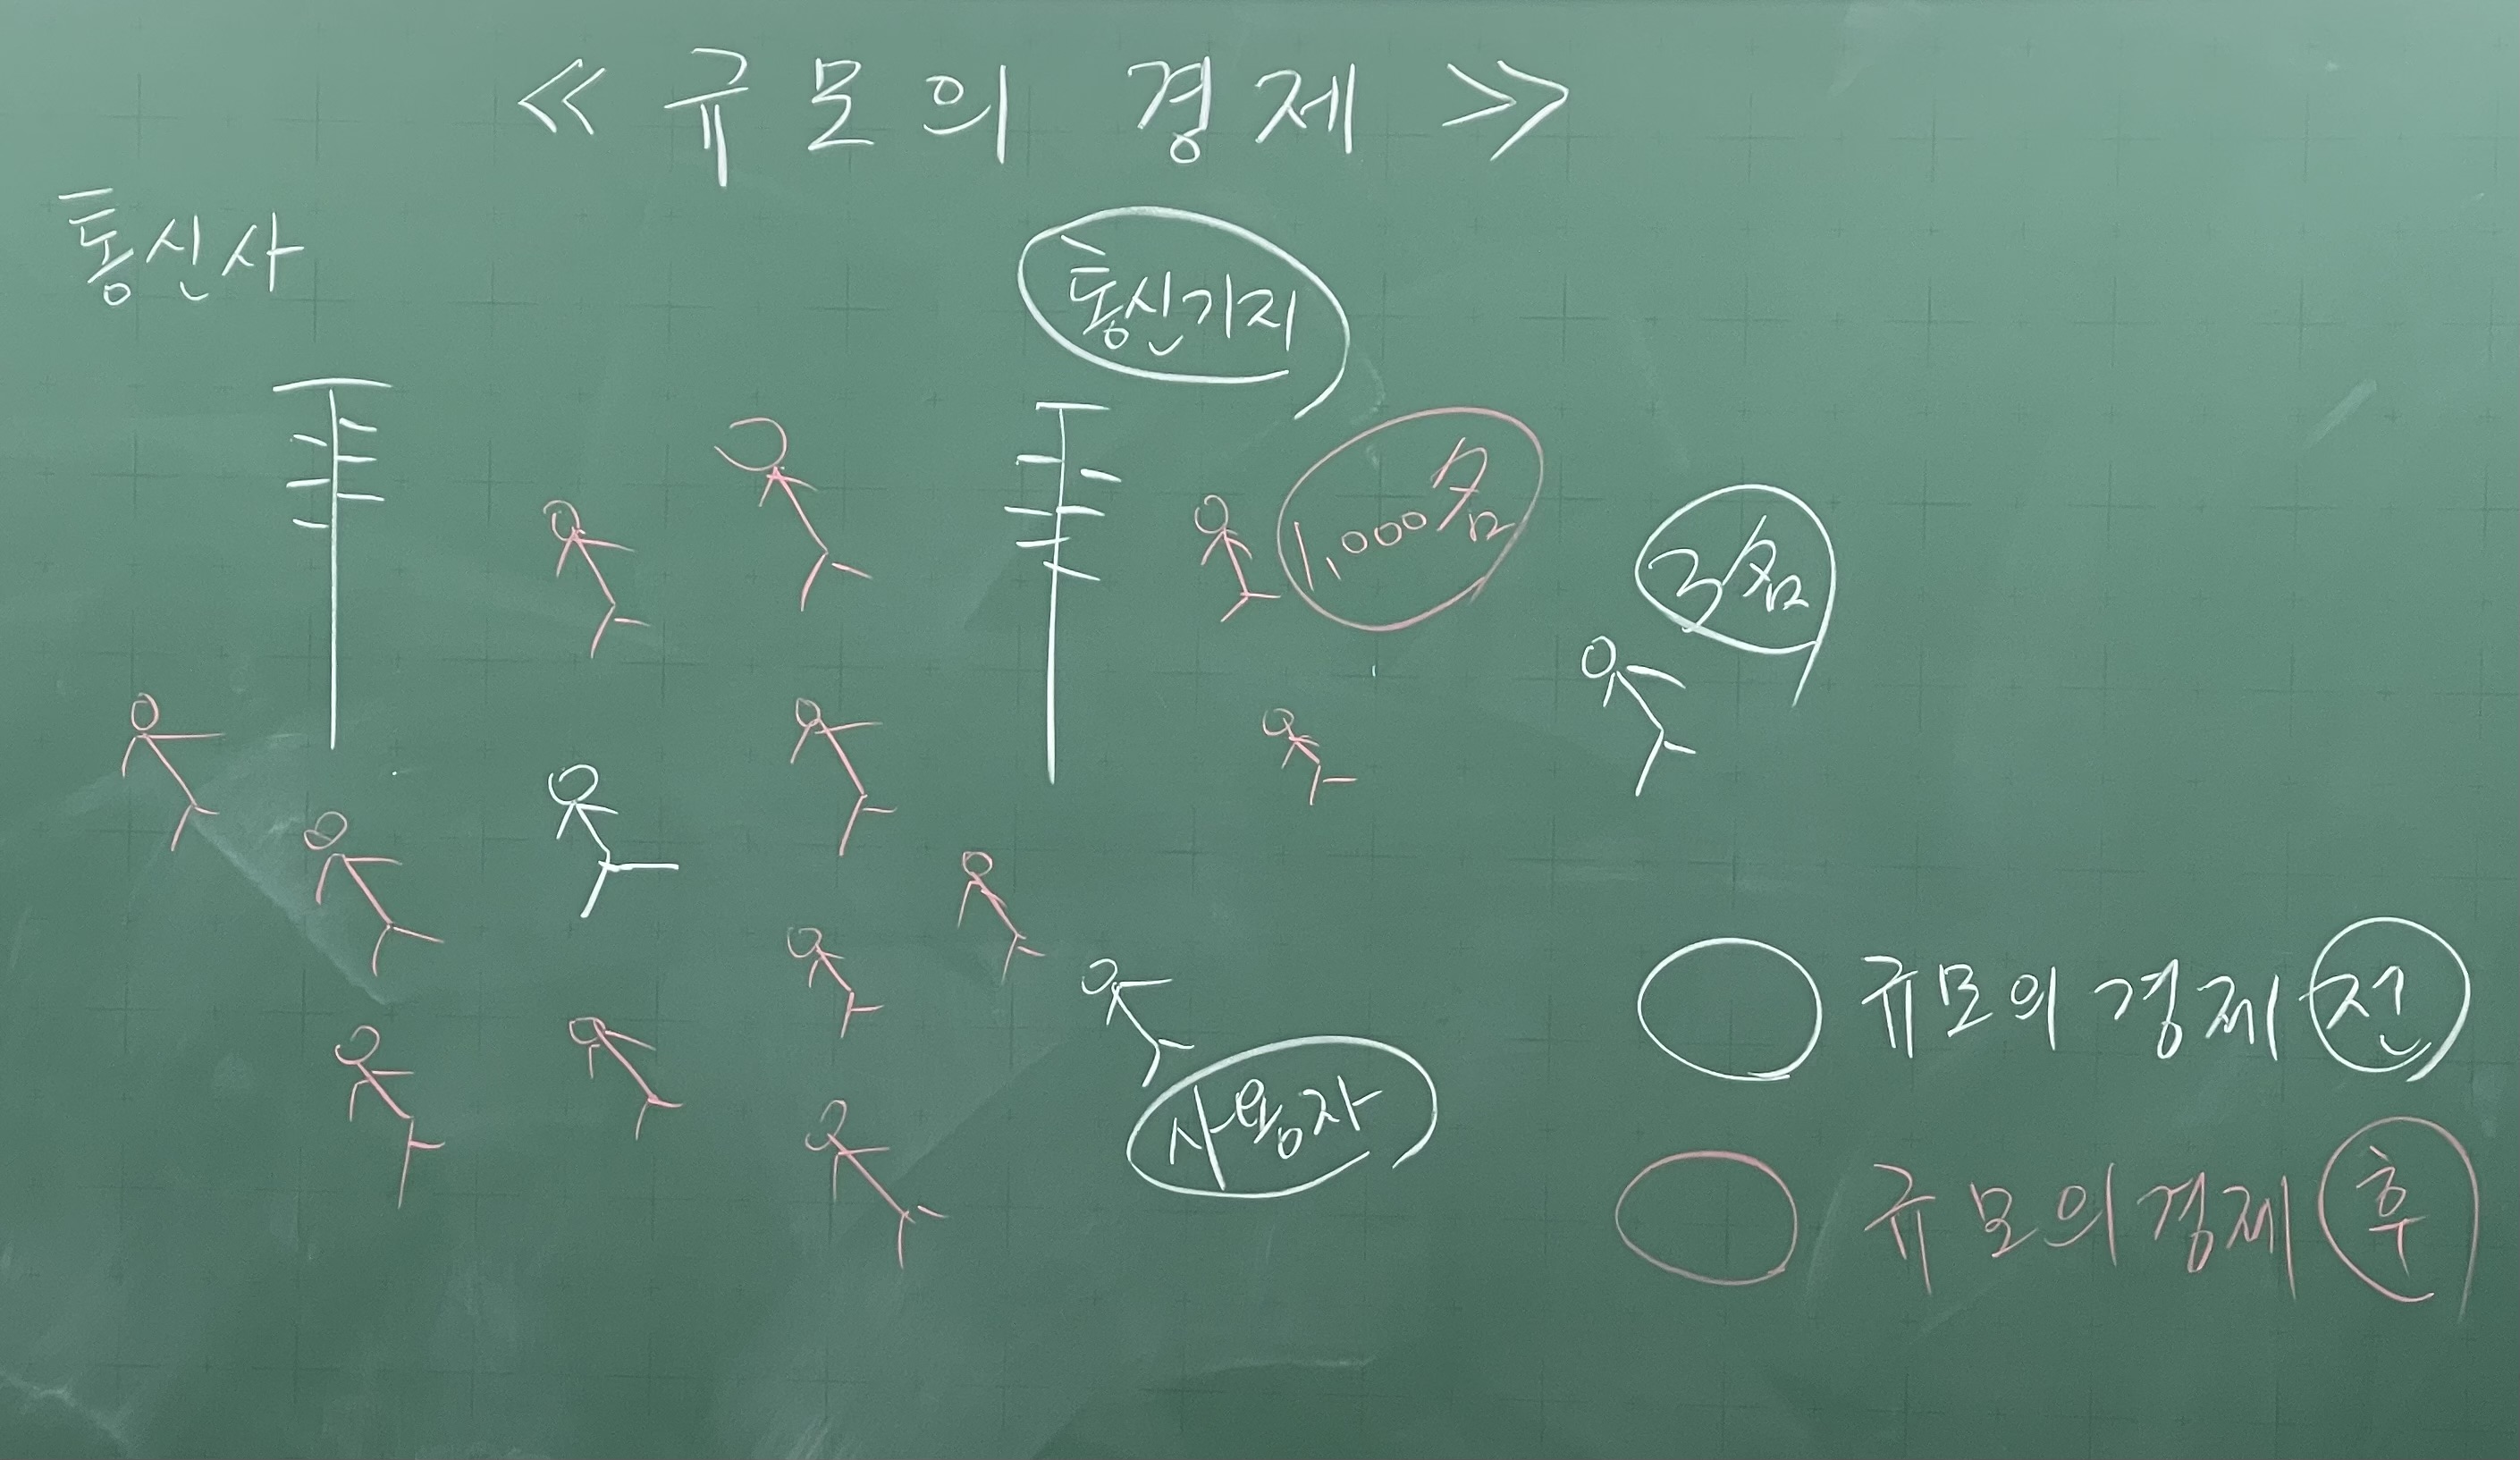 ≪ 규모의 경제 ≫
통신사
통신기지
1,000명
3명
사용자
규모의 경제 전
규모의 경제 후